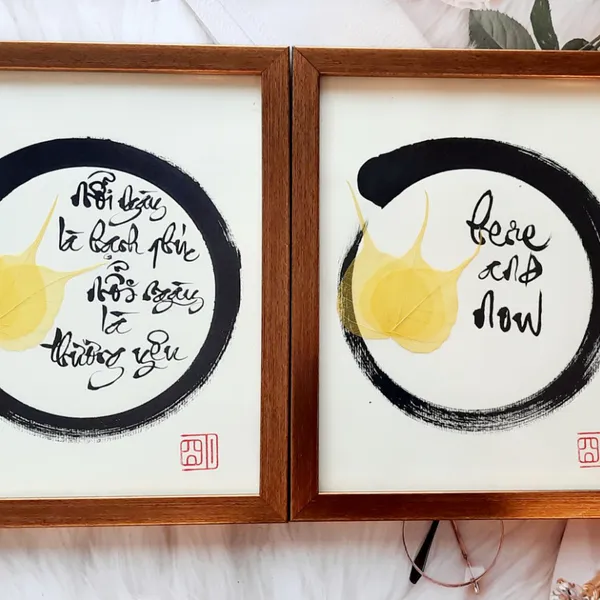 mỗi ngày
là hạnh phúc
mỗi ngày
là
thương yêu
here
and
now